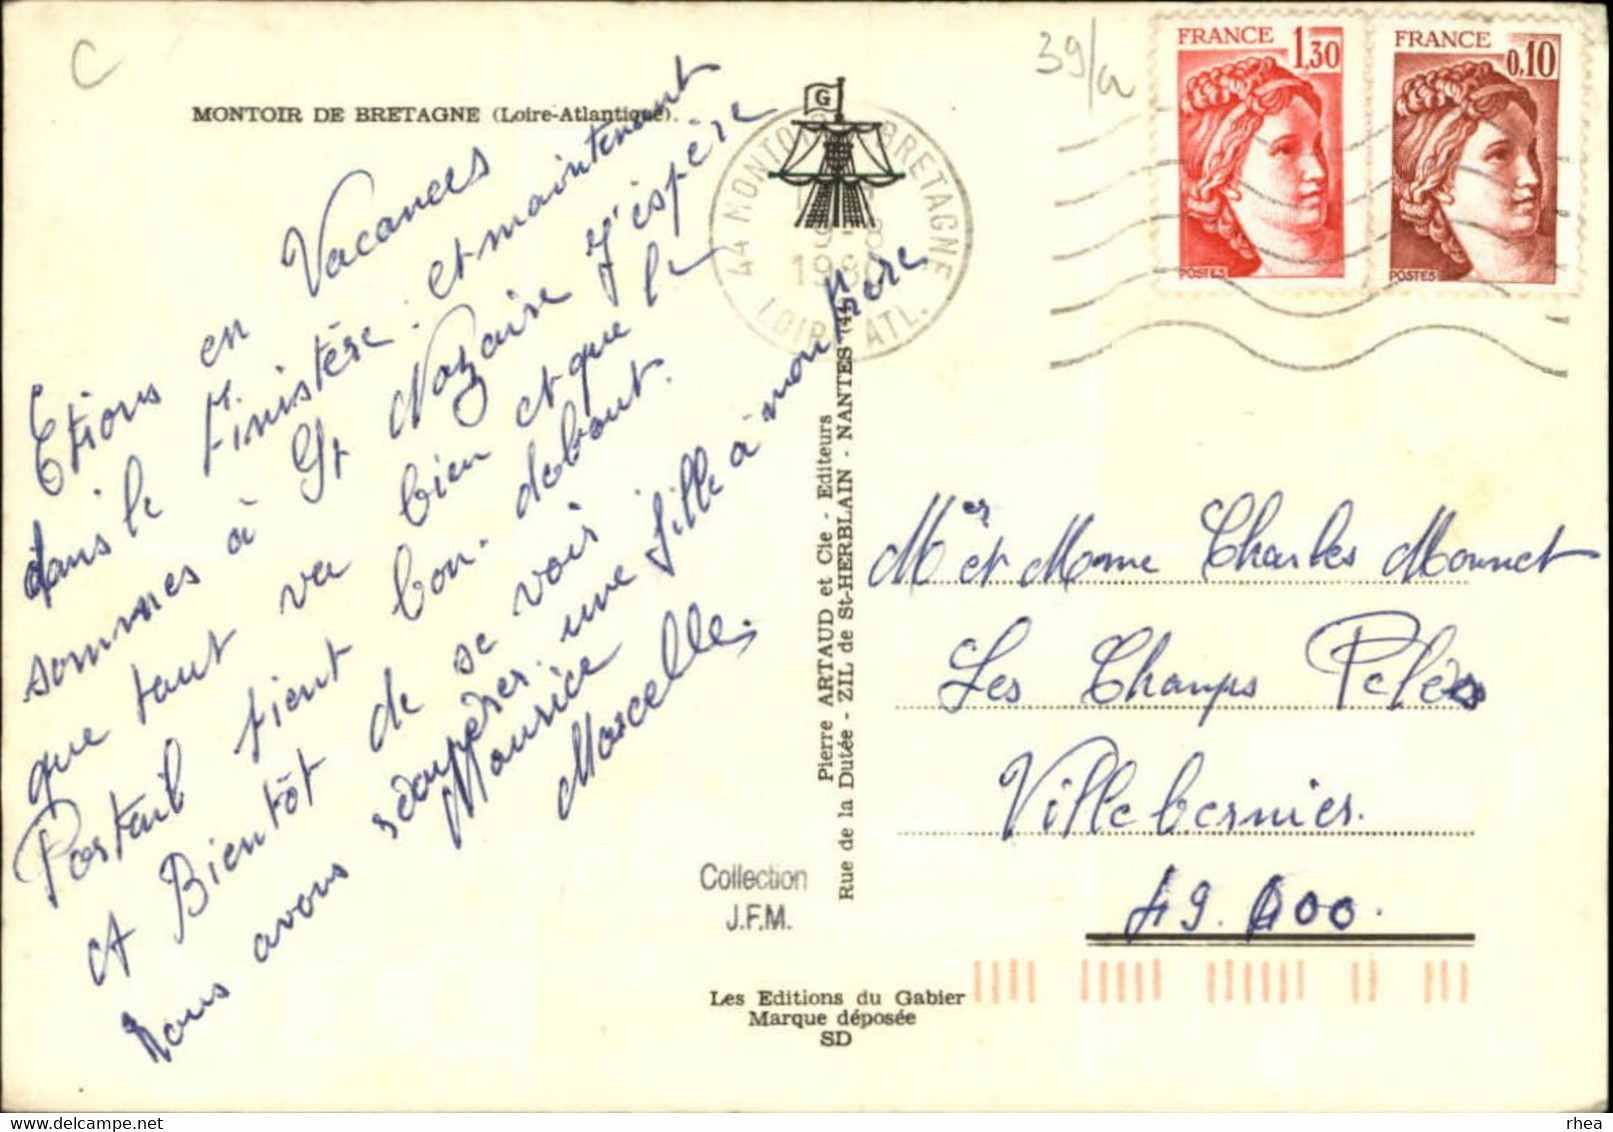 C
39/a
MONTOIR DE BRETAGNE (Loire-Atlantique).
G
44 MONTOIR BRETAGNE
9-8
198
LOIRE ATL.
FRANCE 1,30
POSTES
FRANCE 0,10
POSTES
Etions en Vacances
dans le Finistère. et maintenant
sommes à St Nazaire J'espère
que tout va bien et que le
Portail tient bon. debout.
A Bientôt de se voir
Nous avons une fille à mon frère
Maurice
Marcelle.
Pierre ARTAUD et Cie - Editeurs
Rue de la Dutée - ZIL de St-HERBLAIN - NANTES (44)
Mer et Mme Charles Monnet
Les Champs Pelés
Villebernier.
49.400.
Collection
J.F.M.
Les Editions du Gabier
Marque déposée
SD
rhea